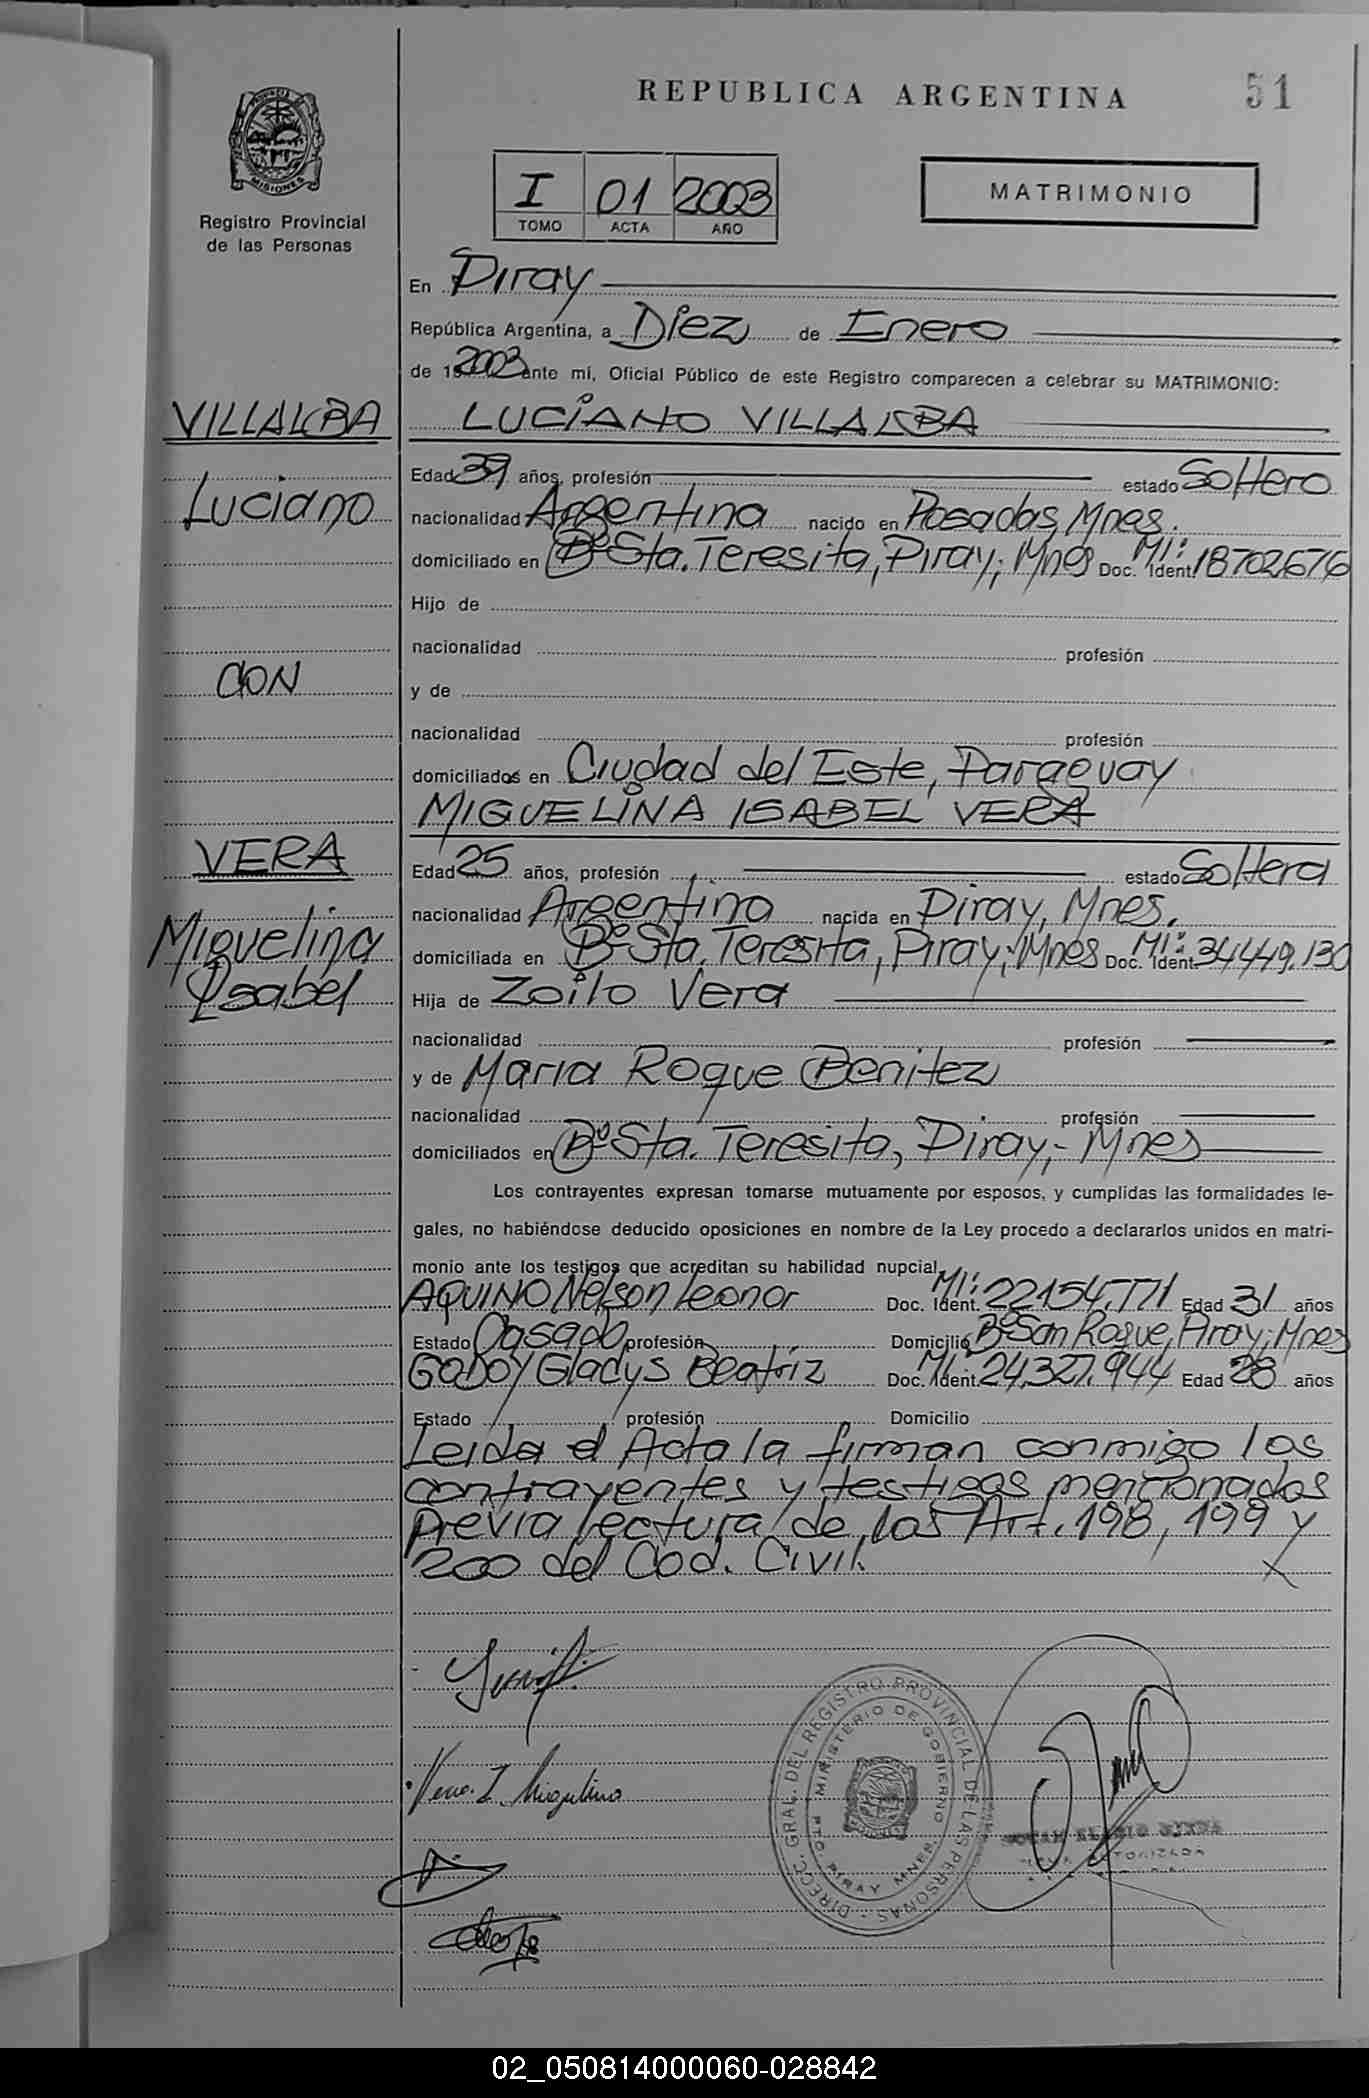 REPUBLICA ARGENTINA
51
MISIONES
Registro Provincial
de las Personas
I 01 2003
TOMO ACTA AÑO
MATRIMONIO
En Piray
República Argentina, a Diez de Enero
de 2003 ante mí, Oficial Público de este Registro comparecen a celebrar su MATRIMONIO:
VILLALBA
LUCIANO VILLALBA
Edad 39 años, profesión estado Soltero
Luciano
nacionalidad Argentina nacido en Posadas, Mnes.
domiciliado en Bº Sta. Teresita, Piray, Mnes Doc. Ident. MI: 18702676
Hijo de
nacionalidad profesión
CON
y de
nacionalidad profesión
domiciliados en Ciudad del Este, Paraguay
MIGUELINA ISABEL VERA
VERA
Edad 25 años, profesión estado Soltera
nacionalidad Argentina nacida en Piray, Mnes.
Miguelina
domiciliada en Bº Sta. Teresita, Piray, Mnes Doc. Ident. MI: 34449.130
Isabel
Hija de Zoilo Vera
nacionalidad profesión
y de Maria Roque Benitez
nacionalidad profesión
domiciliados en Bº Sta. Teresita, Piray,- Mnes
Los contrayentes expresan tomarse mutuamente por esposos, y cumplidas las formalidades le-
gales, no habiéndose deducido oposiciones en nombre de la Ley procedo a declararlos unidos en matri-
monio ante los testigos que acreditan su habilidad nupcial
AQUINO Nelson Leonor Doc. Ident. MI: 22154.771 Edad 31 años
Estado Casado profesión Domicilio Bº San Roque, Piray, Mnes
GODOY Gladys Beatriz Doc. Ident. MI: 24.327.944 Edad 28 años
Estado profesión Domicilio
Leida el Acta la firman conmigo los
contrayentes y testigos mencionados
previa lectura de los Art. 198, 199 y
200 del Cod. Civil.
Vera I. Miguelina
DIRECC. GRAL. DEL REGISTRO PROVINCIAL DE LAS PERSONAS
MINISTERIO DE GOBIERNO
PTO. PIRAY MNES.
02_050814000060-028842